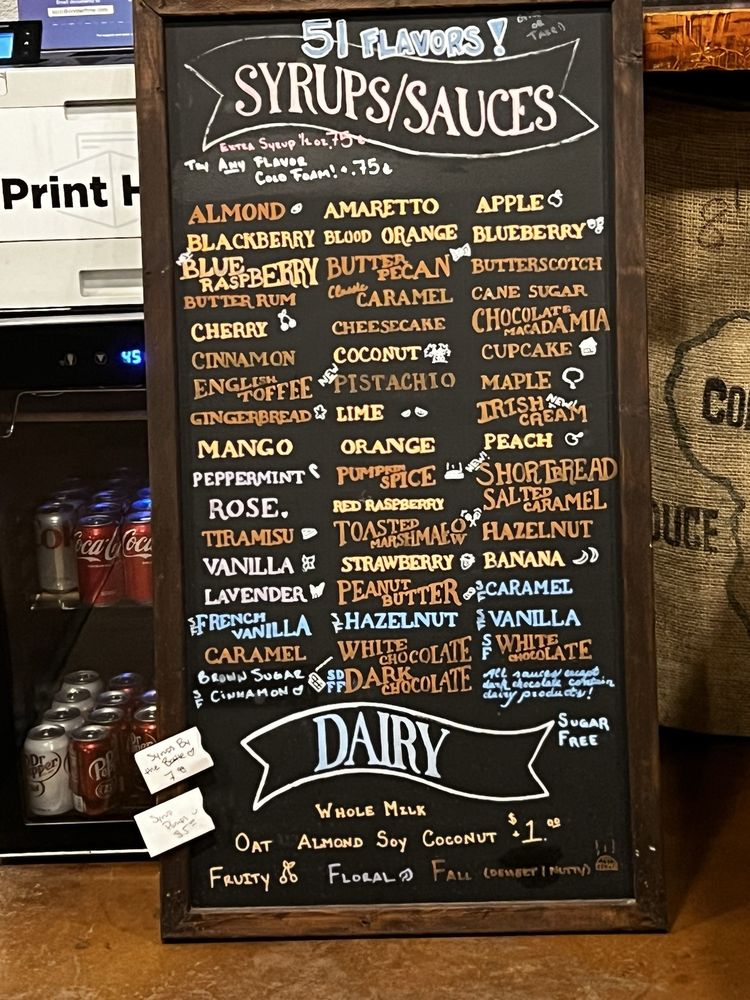 51 FLAVORS!
SYRUPS/SAUCES
EXTRA SYRUP ½ OZ .75¢
TRY ANY FLAVOR
COLD FOAM! + .75¢
ALMOND AMARETTO APPLE
BLACKBERRY BLOOD ORANGE BLUEBERRY
BLUE RASPBERRY BUTTER PECAN BUTTERSCOTCH
BUTTER RUM Classic CARAMEL CANE SUGAR
CHERRY CHEESECAKE CHOCOLATE MACADAMIA
CINNAMON COCONUT CUPCAKE
ENGLISH TOFFEE NEW PISTACHIO MAPLE
GINGERBREAD LIME IRISH CREAM NEW!
MANGO ORANGE PEACH
PEPPERMINT PUMPKIN SPICE NEW! SHORTBREAD
ROSE RED RASPBERRY SALTED CARAMEL
TIRAMISU TOASTED MARSHMALLOW HAZELNUT
VANILLA STRAWBERRY BANANA
LAVENDER PEANUT BUTTER SF CARAMEL
SF FRENCH VANILLA SF HAZELNUT SF VANILLA
CARAMEL WHITE CHOCOLATE SF WHITE CHOCOLATE
BROWN SUGAR
SF CINNAMON
DARK CHOCOLATE
All sauces except
dark chocolate contain
dairy products!
DAIRY
SUGAR
FREE
WHOLE MILK
OAT ALMOND SOY COCONUT $1.00
FRUITY FLORAL FALL (DESSERT / NUTTY)
Syrup
$5
Print H
45
Coca-Cola
Coca
Dr Pepper
CO
DUCE